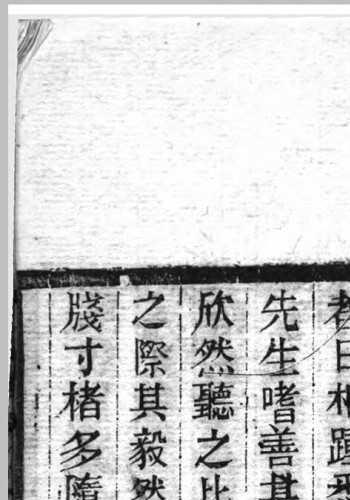 日
先生嗜善
欣然聽之
之際其毅然
牋寸楮多隋